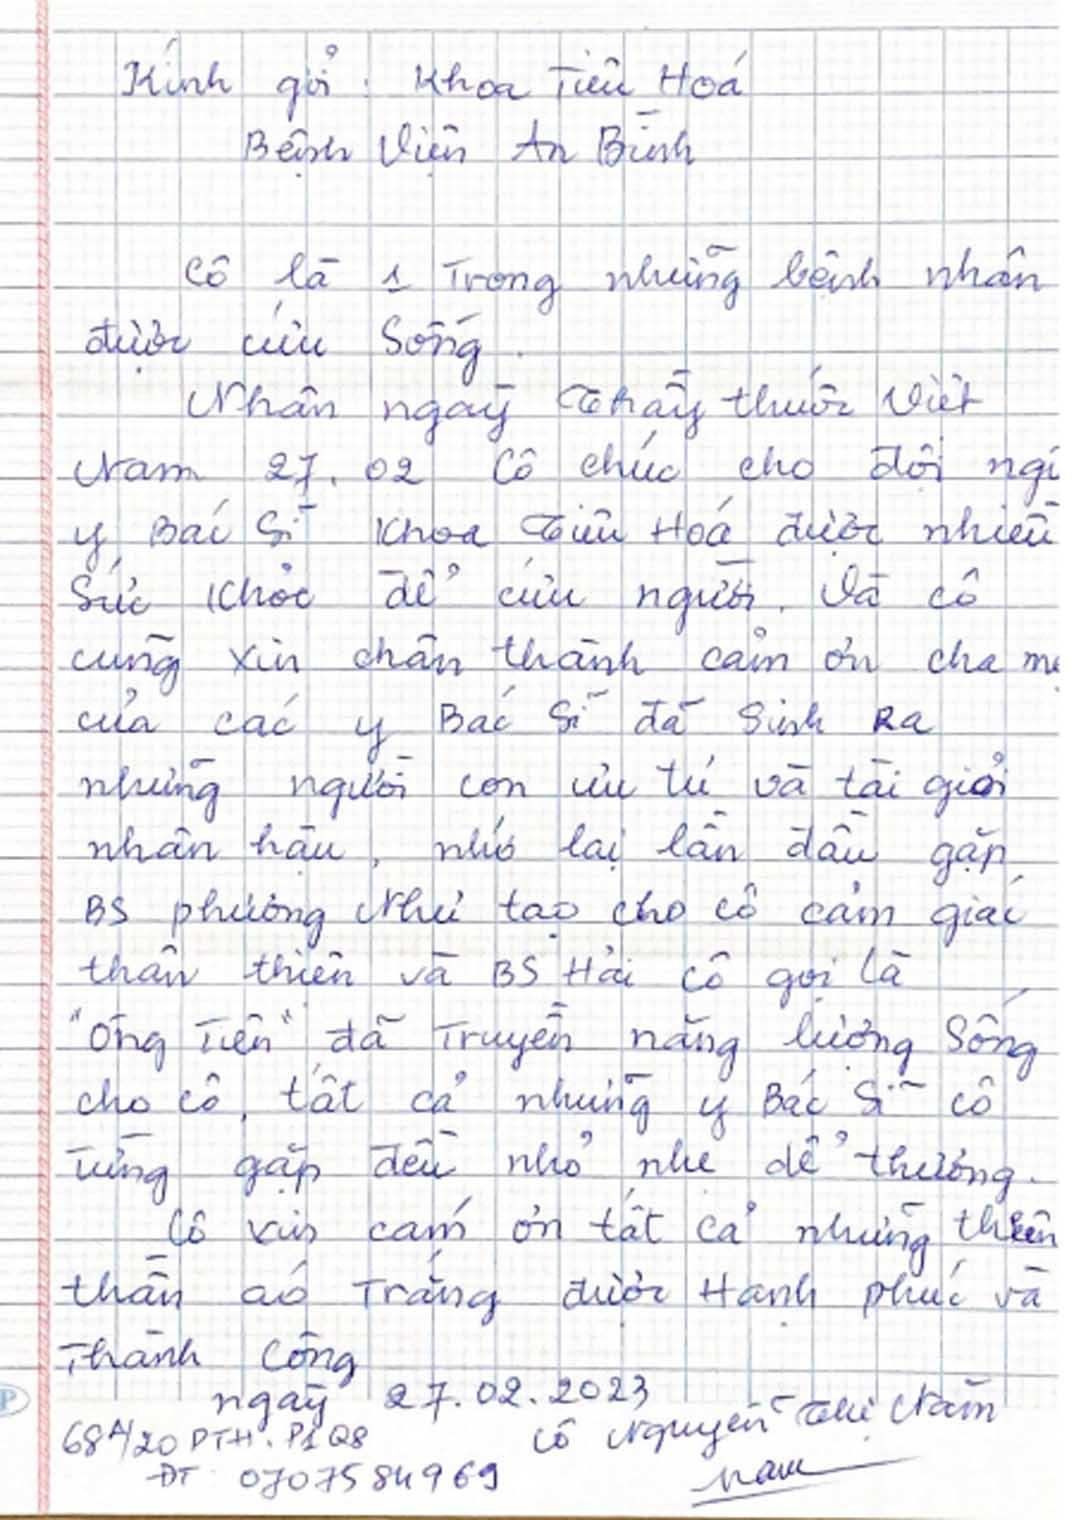 Kính gởi : Khoa Tiêu Hoá
Bệnh Viện An Bình
Cô là 1 Trong những bệnh nhân
được cứu Sống.
Nhân ngày Thầy thuốc Việt
Nam 27.02 Cô chúc cho đội ngũ
y Bác Sĩ Khoa Tiêu Hoá được nhiều
Sức Khỏe để cứu người. Và cô
cũng xin chân thành cảm ơn cha mẹ
của các y Bác Sĩ đã Sinh Ra
những người con ưu tú và tài giỏi
nhân hậu, nhớ lại lần đầu gặp
BS phương Như tạo cho cô cảm giác
thân thiện và BS Hải Cô gọi là
"Ông Tiên" đã Truyền năng lượng Sống
cho cô, tất cả những y Bác Sĩ cô
từng gặp đều nhỏ nhẹ dể thương.
Cô xin cám ơn tất cả những thiên
thần áo Trắng được Hạnh phúc và
Thành Công
ngày 27.02.2023
68A/20 DTH. P1Q8
Cô Nguyễn Thị Năm
ĐT 0707584969
Nam